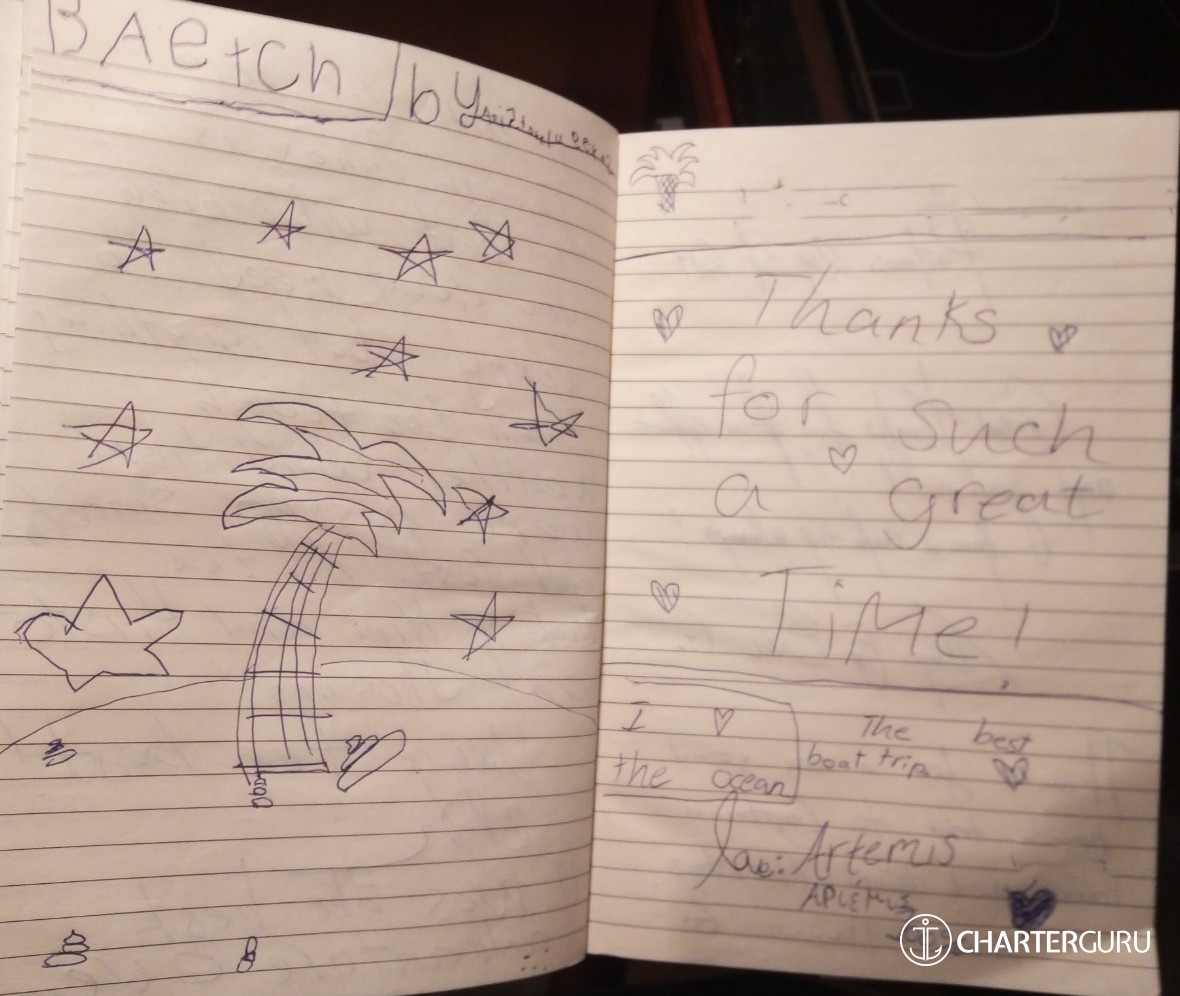 BAetCh
by
Thanks
for such
a great
TiMe!
I ♡
the ocean
The best
boat trip.
Artemis
CHARTERGURU